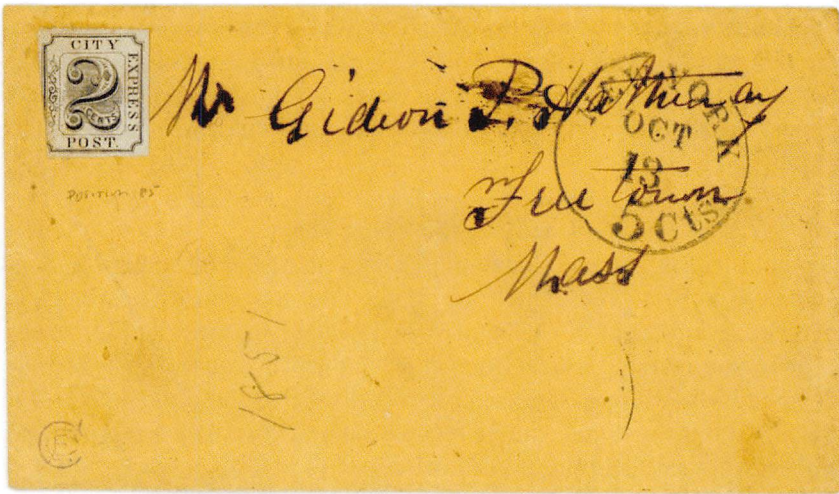 CITY
EXPRESS
2
CENTS
POST.
Mr Gideon P. Hathaway
Freetown
Mass
NEW YORK
OCT
13
5 Cts
POSITION 85
1851